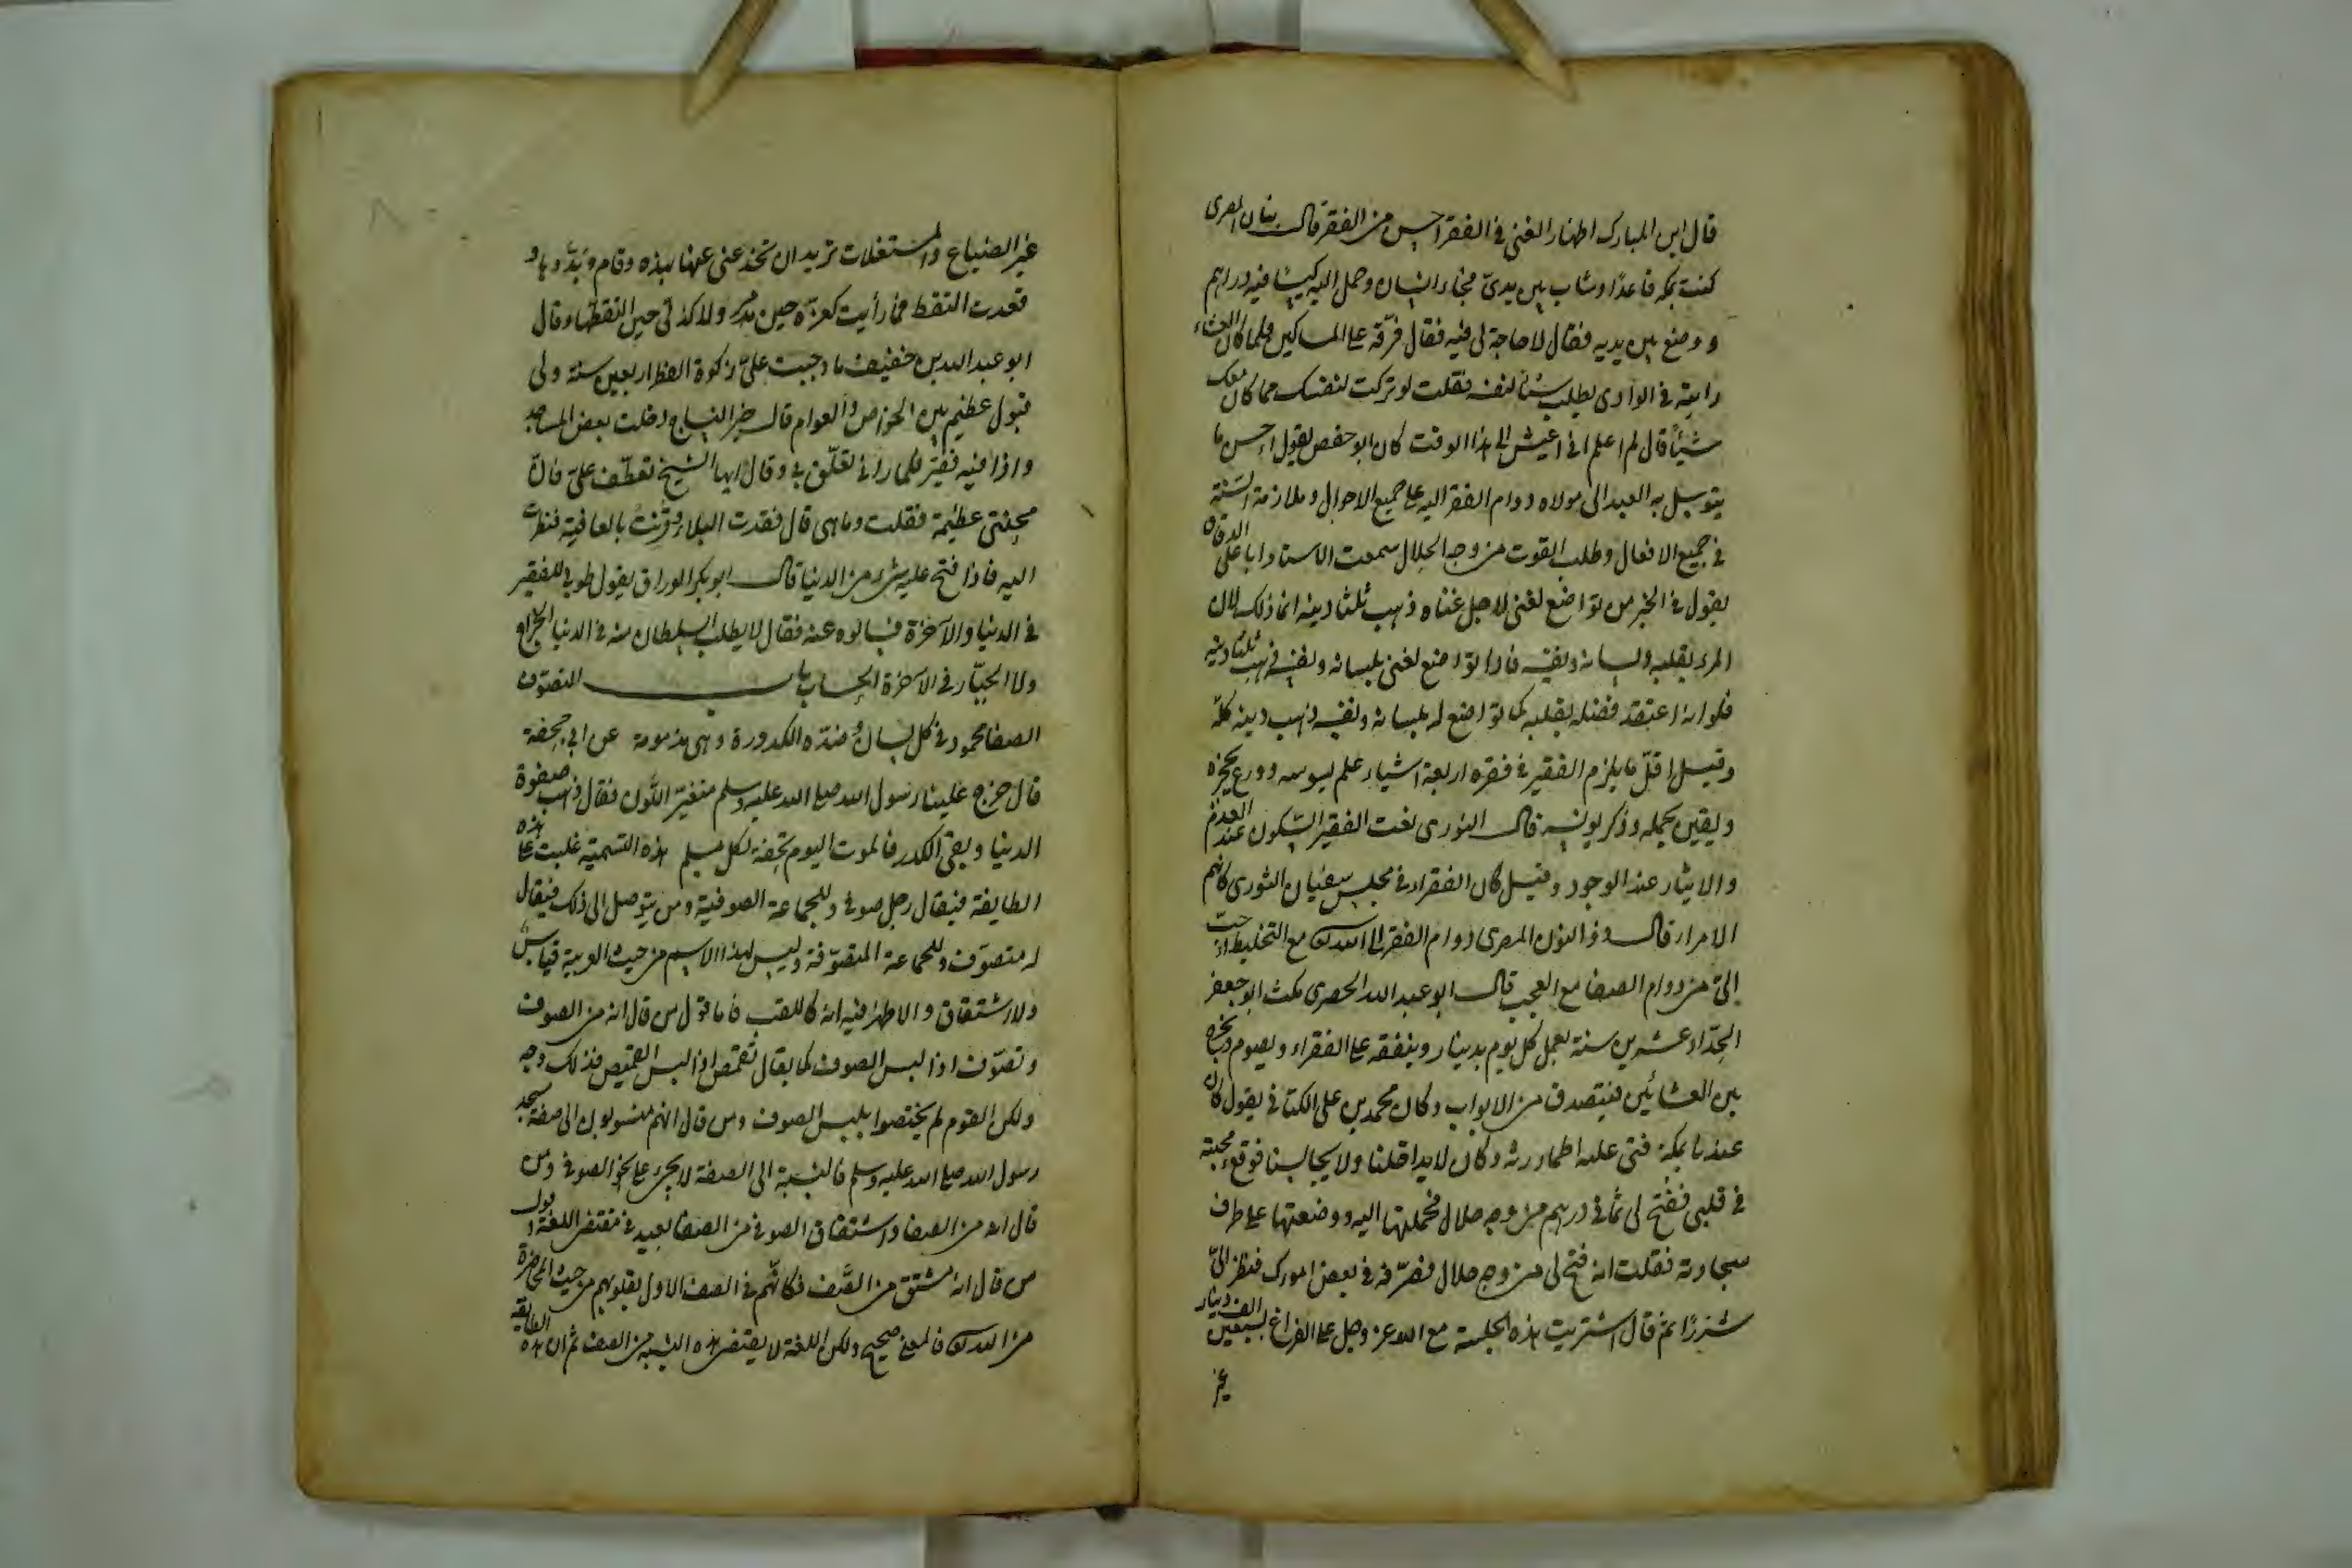 قال ابن المبارك اظهار الغنى فى الفقر احسن من الفقر قال بنان المصرى
كنت بمكة قاعدًا وشاب بين يدىّ فجاءه انسان وحمل اليه كيسًا فيه دراهم
ووضع بين يديه فقال لا حاجة لى فيه فقال فرّقه على المساكين فلما كان العشاء
رايته فى الوادى يطلب شيئا لنفسه فقلت لو تركت لنفسك مما كان معك
شيئًا قال لم اعلم انى اعيش الى هذا الوقت كان ابو حفص يقول احسن ما
يتوسل به العبد الى مولاه دوام الفقر اليه على جميع الاحوال وملازمة السّنّة
فى جميع الافعال وطلب القوت من وجه الحلال سمعت الاستاد ابا على الدقاق
يقول فى الخبر من تواضع لغنى لاجل غناه ذهب ثلثا دينه انما ذلك لان
المرء بقلبه ولسانه ونفسه فاذا تواضع لغنى بلسانه ونفسه ذهب ثلثا دينه
فلو انه اعتقد فضله بقلبه كما تواضع له بلسانه ونفسه ذهب دينه كلّه
وقيل اقلّ ما يلزم الفقير فى فقره اربعة اشياء علم يسوسه وورع يحجزه
ويقين يحمله وذكر يونسه قال النورى نعت الفقير السّكون عند العدم
والايثار عند الوجود وقيل كان الفقراء فى مجلس سفيان الثورى كانهم
الامراء قال ذو النون المصرى دوام الفقر الى الله تعالى مع التخليط احبّ
الىّ من دوام الصفا مع العجب قال ابو عبد الله الحصرى مكث ابو جعفر
الحدّاد عشرين سنة يعمل كل يوم بدينار وينفقه على الفقراء ويصوم ويخرج
بين العشائين فيتصدق من الابواب وكان محمد بن على الكتانى يقول كان
عندنا بمكة فتى عليه اطمار رثة وكان لا يداخلنا ولا يجالسنا فوقع محبته
فى قلبى ففتح لى ثمانى درهم من وجه حلال فحملتها اليه ووضعتها على طرف
سجادته فقلت انه فتح لى من وجه حلال فصرّفه فى بعض امورك فنظر الىّ
شزرًا ثم قال اشتريت هذه الجلسة مع الله عز وجل على الفراغ بسبعين الف دينار
غير
غير الضياع والمستغلات تريد ان تخدعنى عنها بهذه وقام وبدّدها و
قعدت التقط فما رأيت كعزّه حين مر ولا كذلى حين التقطها وقال
ابو عبد الله بن خفيف ما وجبت علىّ زكوة الفطر اربعين سنة ولى
قبول عظيم بين الخواص والعوام قال خير النساج دخلت بعض المساجد
واذا فيه فقير فلما رانى تعلّق بى وقال ايها الشيخ تعطّف علىّ فان
محنتى عظيمة فقلت وما هى قال فقدت البلاء وقرنت بالعافية فنظرت
اليه فاذا فتح عليه شىء من الدنيا قال ابو بكر الوراق يقول طوبى للفقير
فى الدنيا والآخرة فسالوه عنه فقال لا يطلب السلطان منه فى الدنيا الخراج
ولا الجبّار فى الآخرة الحساب باب التصوّف
الصفا محمود فى كل لسان وضدّه الكدورة وهى مذمومة عن ابى جحفة
قال خرج علينا رسول الله صلى الله عليه وسلم متغيّر اللّون فقال ذهب صفوة
الدنيا وبقى الكدر فالموت اليوم تحفة لكل مسلم هذه التسمية غلبت على هذه
الطايفة فيقال رجل صوفى وللجماعة الصوفية ومن يتوصل الى ذلك فيقال
له متصوّف وللجماعة المتصوّفة وليس لهذا الاسم من حيث العربية قياس
ولا اشتقاق والاظهر فيه انه كاللقب فاما قول من قال انه من الصوف
وتصوّف اذا لبس الصوف كما يقال تقمّص اذا لبس القميص فذلك وجه
ولكن القوم لم يختصوا بلبس الصوف ومن قال انهم منسوبون الى صفة مسجد
رسول الله صلى الله عليه وسلم فالنسبة الى الصفة لا يجىء على نحو الصوفى ومن
قال انه من الصفا واشتقاق الصوفى من الصفا بعيد فى مقتضى اللغة وقول
من قال انه مشتق من الصّف فكانّهم فى الصف الاول بقلوبهم من حيث المحاضرة
من الله تعالى فالمعنى صحيح ولكن اللغة لا يقتضى هذه النسبة من الصف ثم ان هذه الطايفة